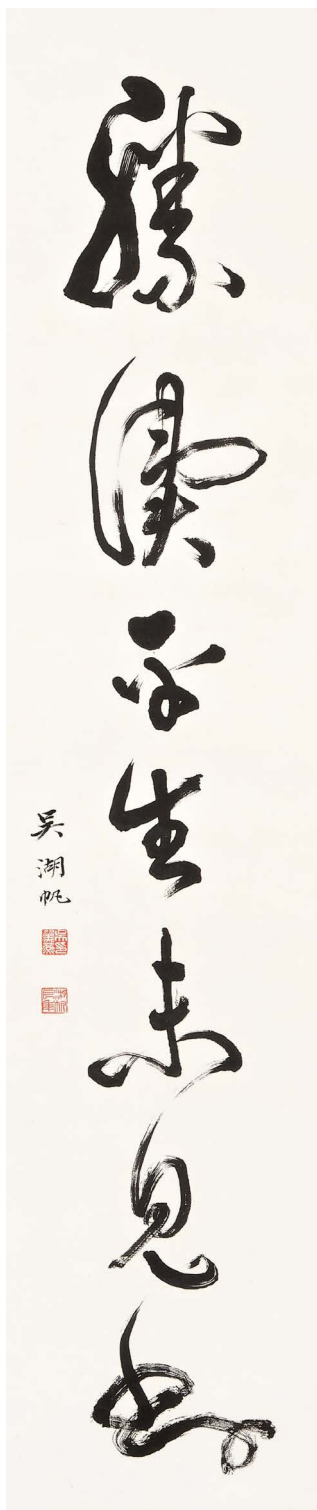 勝讀平生未見書
吳湖帆